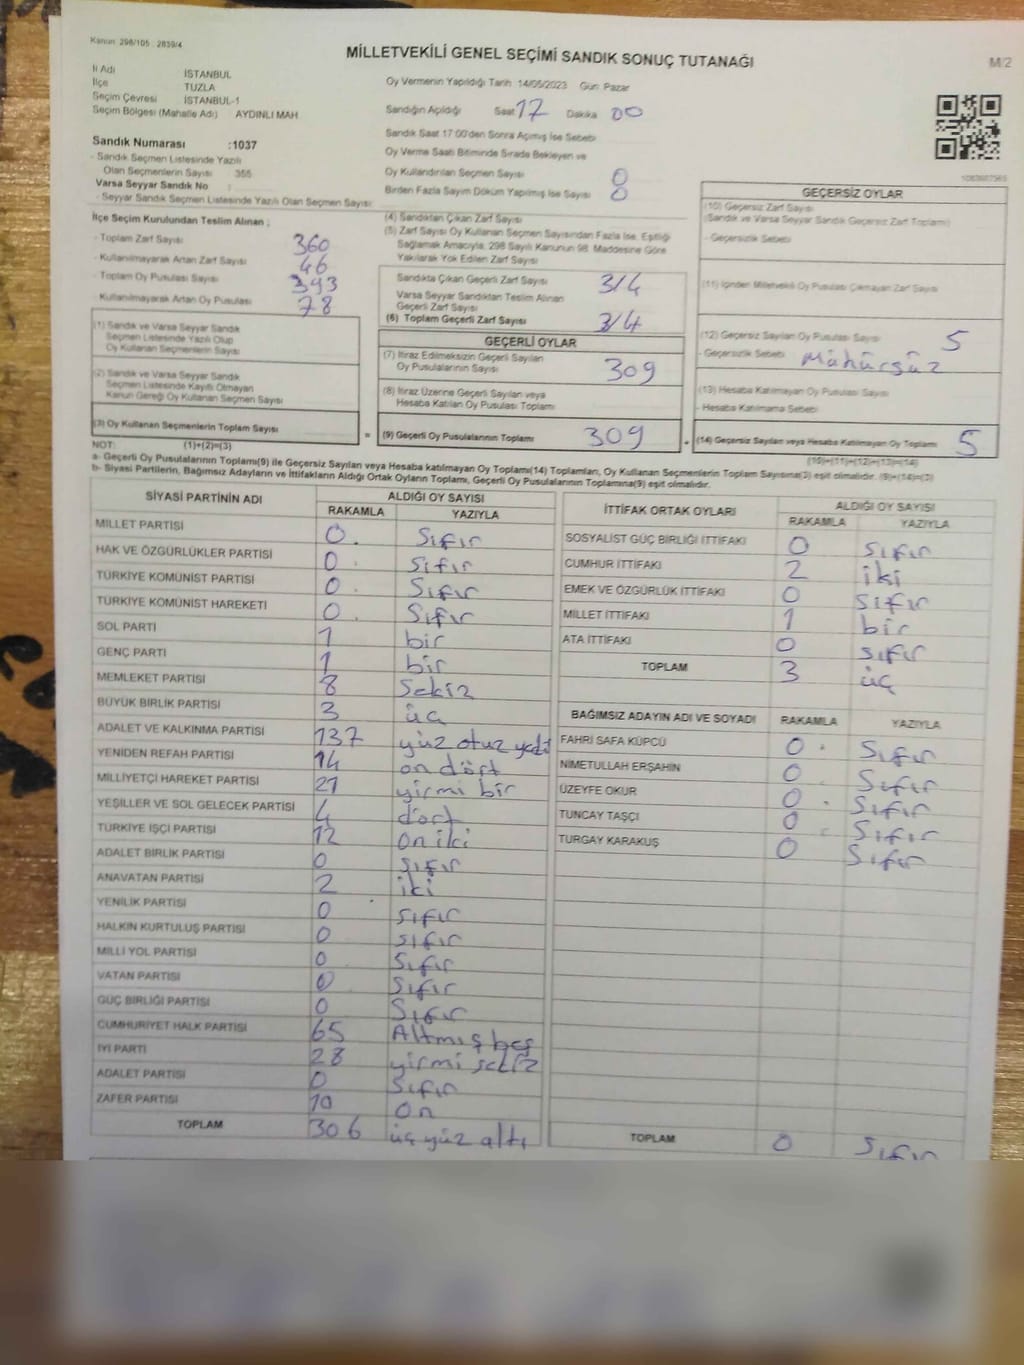 Kanun: 298/105 : 2839/4
MİLLETVEKİLİ GENEL SEÇİMİ SANDIK SONUÇ TUTANAĞI
M/2
İl Adı İSTANBUL
İlçe TUZLA
Seçim Çevresi İSTANBUL-1
Seçim Bölgesi (Mahalle Adı) AYDINLI MAH
Sandık Numarası :1037
- Sandık Seçmen Listesinde Yazılı
Olan Seçmenlerin Sayısı 355
Varsa Seyyar Sandık No :
- Seyyar Sandık Seçmen Listesinde Yazılı Olan Seçmen Sayısı:
Oy Vermenin Yapıldığı Tarih 14/05/2023 Gün: Pazar
Sandığın Açıldığı Saat 17 Dakika 00
Sandık Saat 17:00'den Sonra Açılmış İse Sebebi
Oy Verme Saati Bitiminde Sırada Bekleyen ve
Oy Kullandırılan Seçmen Sayısı 0
Birden Fazla Sayım Döküm Yapılmış İse Sayısı 0
İlçe Seçim Kurulundan Teslim Alınan ;
- Toplam Zarf Sayısı 360
- Kullanılmayarak Artan Zarf Sayısı 46
- Toplam Oy Pusulası Sayısı 393
- Kullanılmayarak Artan Oy Pusulası 78
(1) Sandık ve Varsa Seyyar Sandık
Seçmen Listesinde Yazılı Olup
Oy Kullanan Seçmenlerin Sayısı
(2) Sandık ve Varsa Seyyar Sandık
Seçmen Listesinde Kayıtlı Olmayan
Kanun Gereği Oy Kullanan Seçmen Sayısı
(3) Oy Kullanan Seçmenlerin Toplam Sayısı
NOT: (1)+(2)=(3)
(4) Sandıktan Çıkan Zarf Sayısı
(5) Zarf Sayısı Oy Kullanan Seçmen Sayısından Fazla İse, Eşitliği
Sağlamak Amacıyla, 298 Sayılı Kanunun 98. Maddesine Göre
Yakılarak Yok Edilen Zarf Sayısı
Sandıkta Çıkan Geçerli Zarf Sayısı 314
Varsa Seyyar Sandıktan Teslim Alınan
Geçerli Zarf Sayısı
(6) Toplam Geçerli Zarf Sayısı 314
GEÇERLİ OYLAR
(7) İtiraz Edilmeksizin Geçerli Sayılan
Oy Pusulalarının Sayısı 309
(8) İtiraz Üzerine Geçerli Sayılan veya
Hesaba Katılan Oy Pusulası Toplamı
= (9) Geçerli Oy Pusulalarının Toplamı 309
GEÇERSİZ OYLAR
(10) Geçersiz Zarf Sayısı
(Sandık ve Varsa Seyyar Sandık Geçersiz Zarf Toplamı)
- Geçersizlik Sebebi
(11) İçinden Milletvekili Oy Pusulası Çıkmayan Zarf Sayısı
(12) Geçersiz Sayılan Oy Pusulası Sayısı 5
- Geçersizlik Sebebi Mühürsüz
(13) Hesaba Katılmayan Oy Pusulası Sayısı
- Hesaba Katılmama Sebebi
+ (14) Geçersiz Sayılan veya Hesaba Katılmayan Oy Toplamı 5
(10)+(11)+(12)+(13)=(14)
a- Geçerli Oy Pusulalarının Toplamı(9) ile Geçersiz Sayılan veya Hesaba katılmayan Oy Toplamı(14) Toplamları, Oy Kullanan Seçmenlerin Toplam Sayısına(3) eşit olmalıdır. (9)+(14)=(3)
b- Siyasi Partilerin, Bağımsız Adayların ve İttifakların Aldığı Ortak Oyların Toplamı, Geçerli Oy Pusulalarının Toplamına(9) eşit olmalıdır.
SİYASİ PARTİNİN ADI ALDIĞI OY SAYISI
RAKAMLA YAZIYLA
MİLLET PARTİSİ 0. Sıfır
HAK VE ÖZGÜRLÜKLER PARTİSİ 0. Sıfır
TÜRKİYE KOMÜNİST PARTİSİ 0. Sıfır
TÜRKİYE KOMÜNİST HAREKETİ 0. Sıfır
SOL PARTİ 1 bir
GENÇ PARTİ 1 bir
MEMLEKET PARTİSİ 8 Sekiz
BÜYÜK BİRLİK PARTİSİ 3 üç
ADALET VE KALKINMA PARTİSİ 137 yüz otuz yedi
YENİDEN REFAH PARTİSİ 14 on dört
MİLLİYETÇİ HAREKET PARTİSİ 21 yirmi bir
YEŞİLLER VE SOL GELECEK PARTİSİ 4 dört
TÜRKİYE İŞÇİ PARTİSİ 12 on iki
ADALET BİRLİK PARTİSİ 0 sıfır
ANAVATAN PARTİSİ 2 iki
YENİLİK PARTİSİ 0 sıfır
HALKIN KURTULUŞ PARTİSİ 0 sıfır
MİLLİ YOL PARTİSİ 0 Sıfır
VATAN PARTİSİ 0 Sıfır
GÜÇ BİRLİĞİ PARTİSİ 0 Sıfır
CUMHURİYET HALK PARTİSİ 65 Altmış beş
İYİ PARTİ 28 yirmi sekiz
ADALET PARTİSİ 0 Sıfır
ZAFER PARTİSİ 10 on
TOPLAM 306 üç yüz altı
İTTİFAK ORTAK OYLARI ALDIĞI OY SAYISI
RAKAMLA YAZIYLA
SOSYALİST GÜÇ BİRLİĞİ İTTİFAKI 0 sıfır
CUMHUR İTTİFAKI 2 iki
EMEK VE ÖZGÜRLÜK İTTİFAKI 0 sıfır
MİLLET İTTİFAKI 1 bir
ATA İTTİFAKI 0 sıfır
TOPLAM 3 üç
BAĞIMSIZ ADAYIN ADI VE SOYADI RAKAMLA YAZIYLA
FAHRİ SAFA KÜPCÜ 0. Sıfır
NİMETULLAH ERŞAHİN 0 Sıfır
ÜZEYFE OKUR 0. Sıfır
TUNCAY TAŞÇI 0 Sıfır
TURGAY KARAKUŞ 0 Sıfır
TOPLAM 0 Sıfır